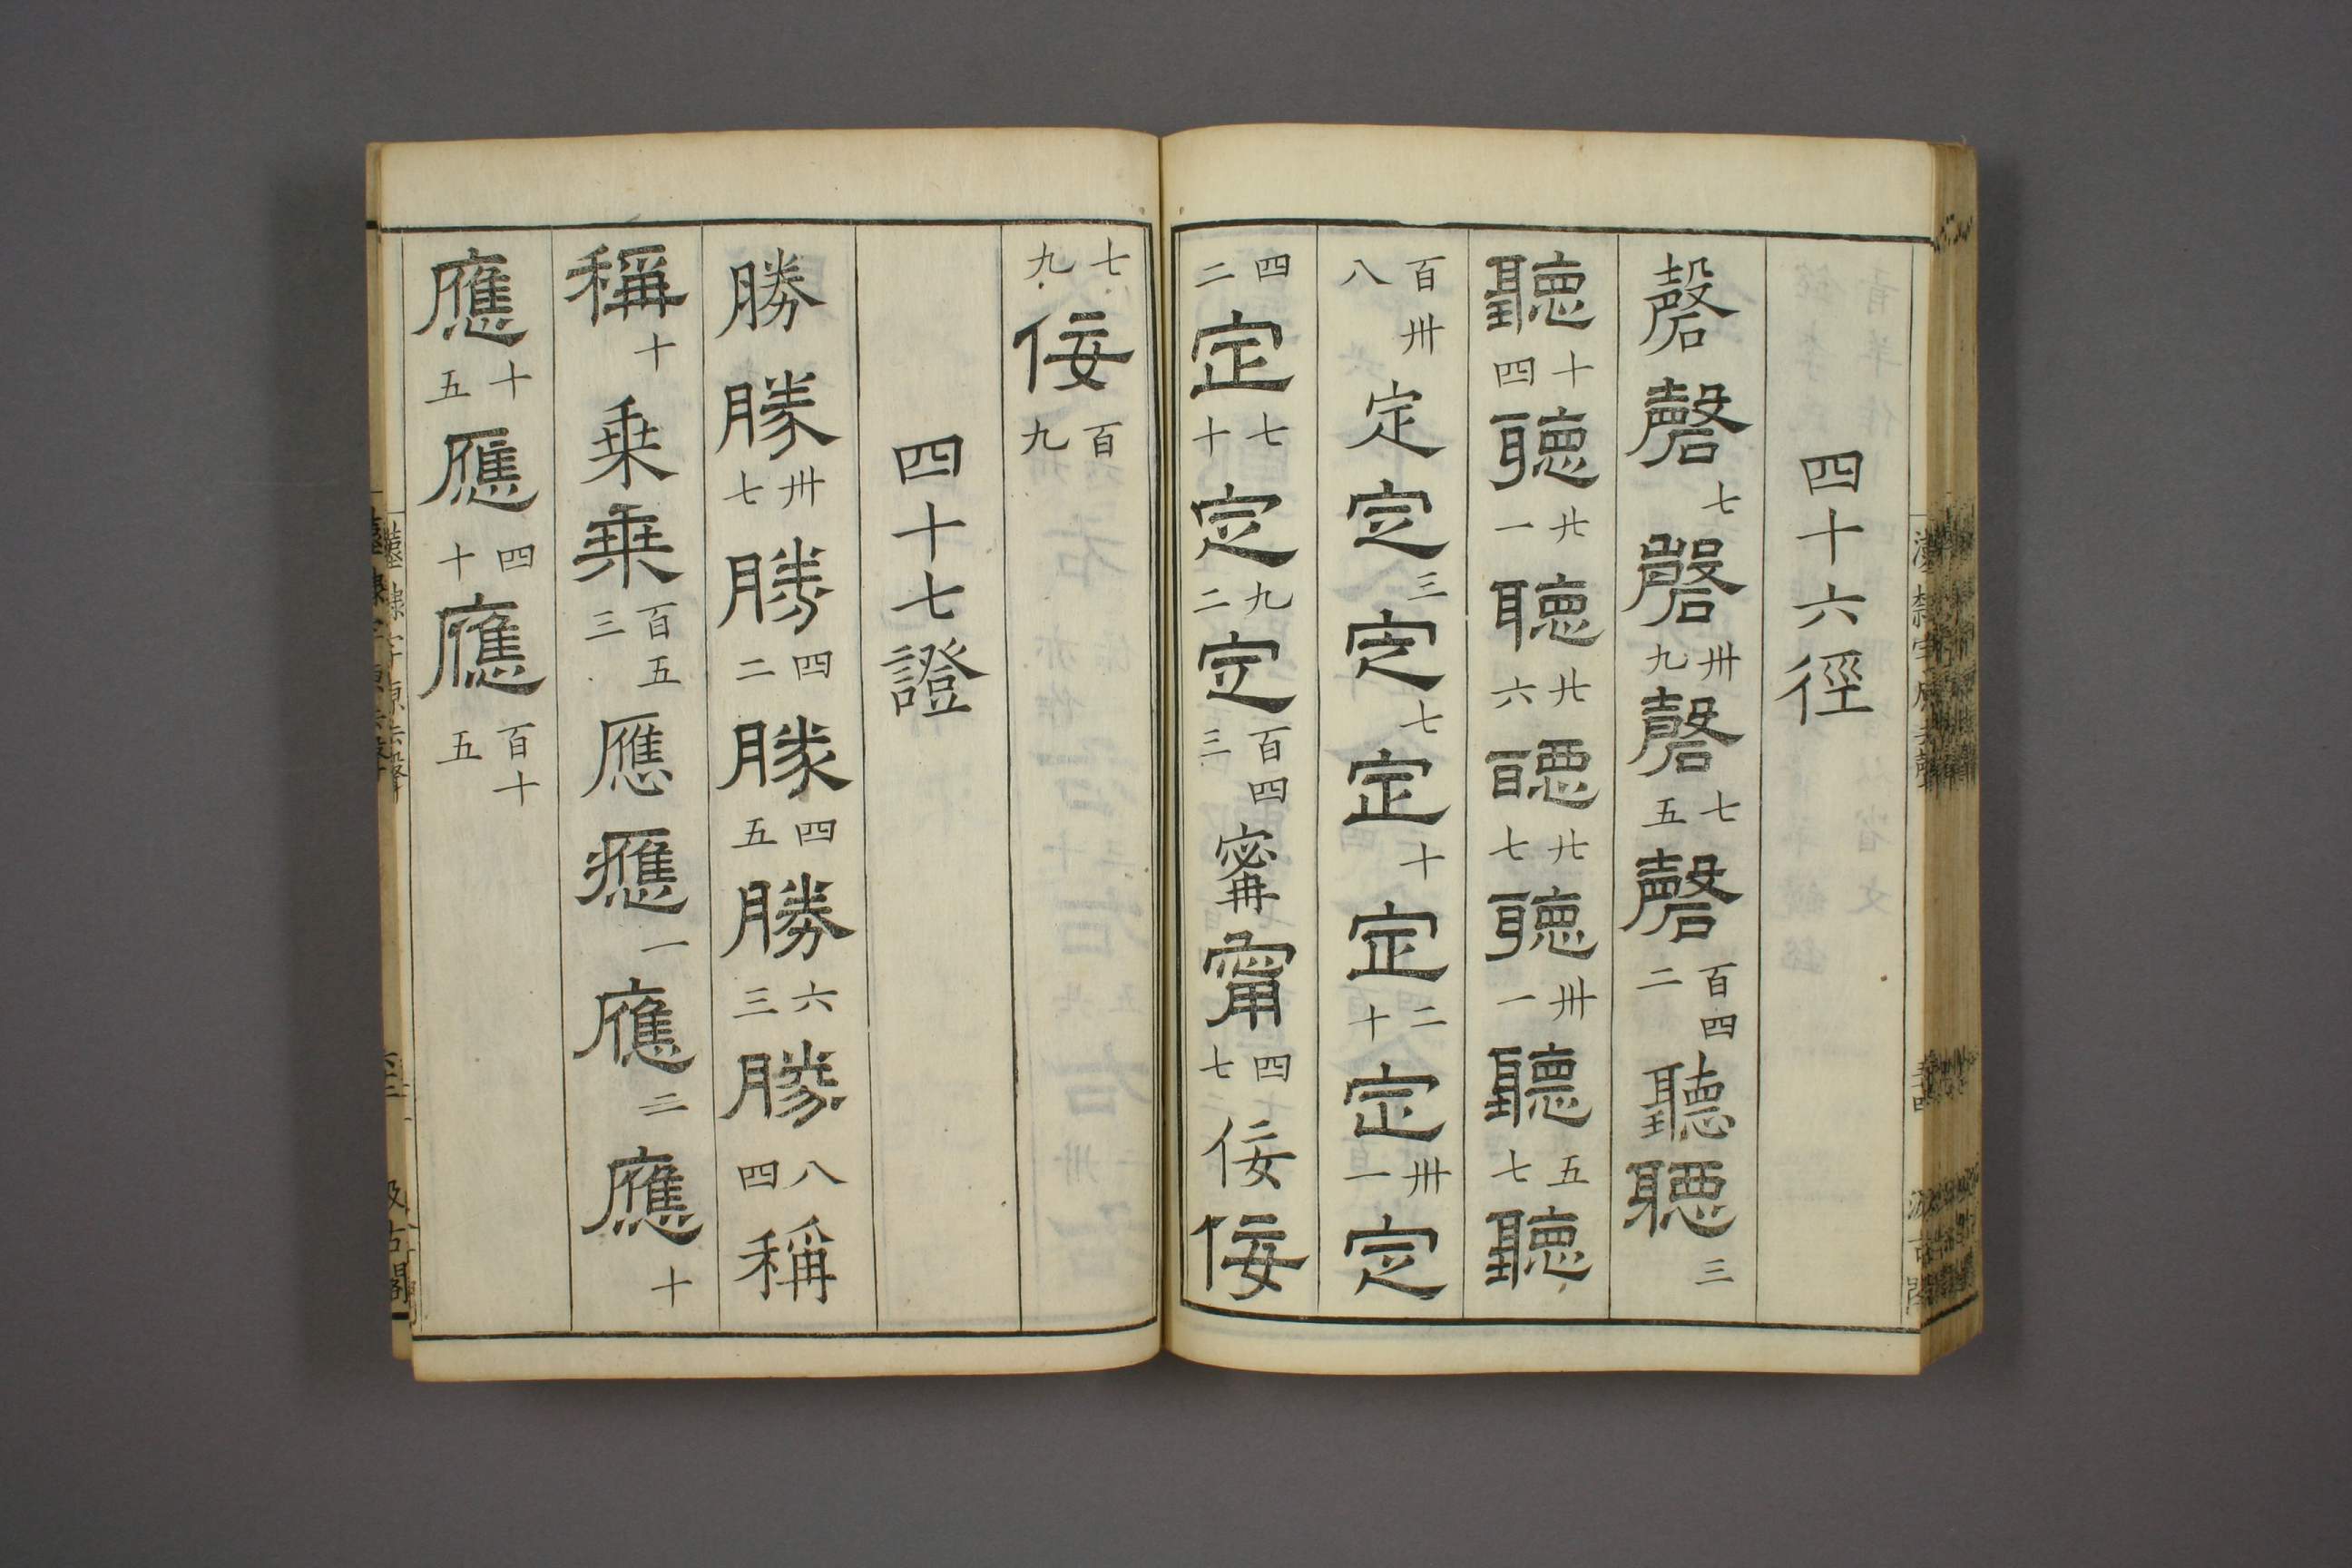 四十六徑
磬磬七磬卅九磬七五磬百四二聽聽三
聽十四聽廿一聽廿六聽廿七聽卅一聽五七聽
百卅八定定三定七定十定二十定卅一定
四二定七十定九二定百四三甯甯四七佞佞
七九佞百九
四十七證
勝勝卅七勝四二勝四五勝六三勝八四稱
稱十乗乗百五三應應一應二應十
應十五應四十應百十五
漢隸字原去聲
汲古閣